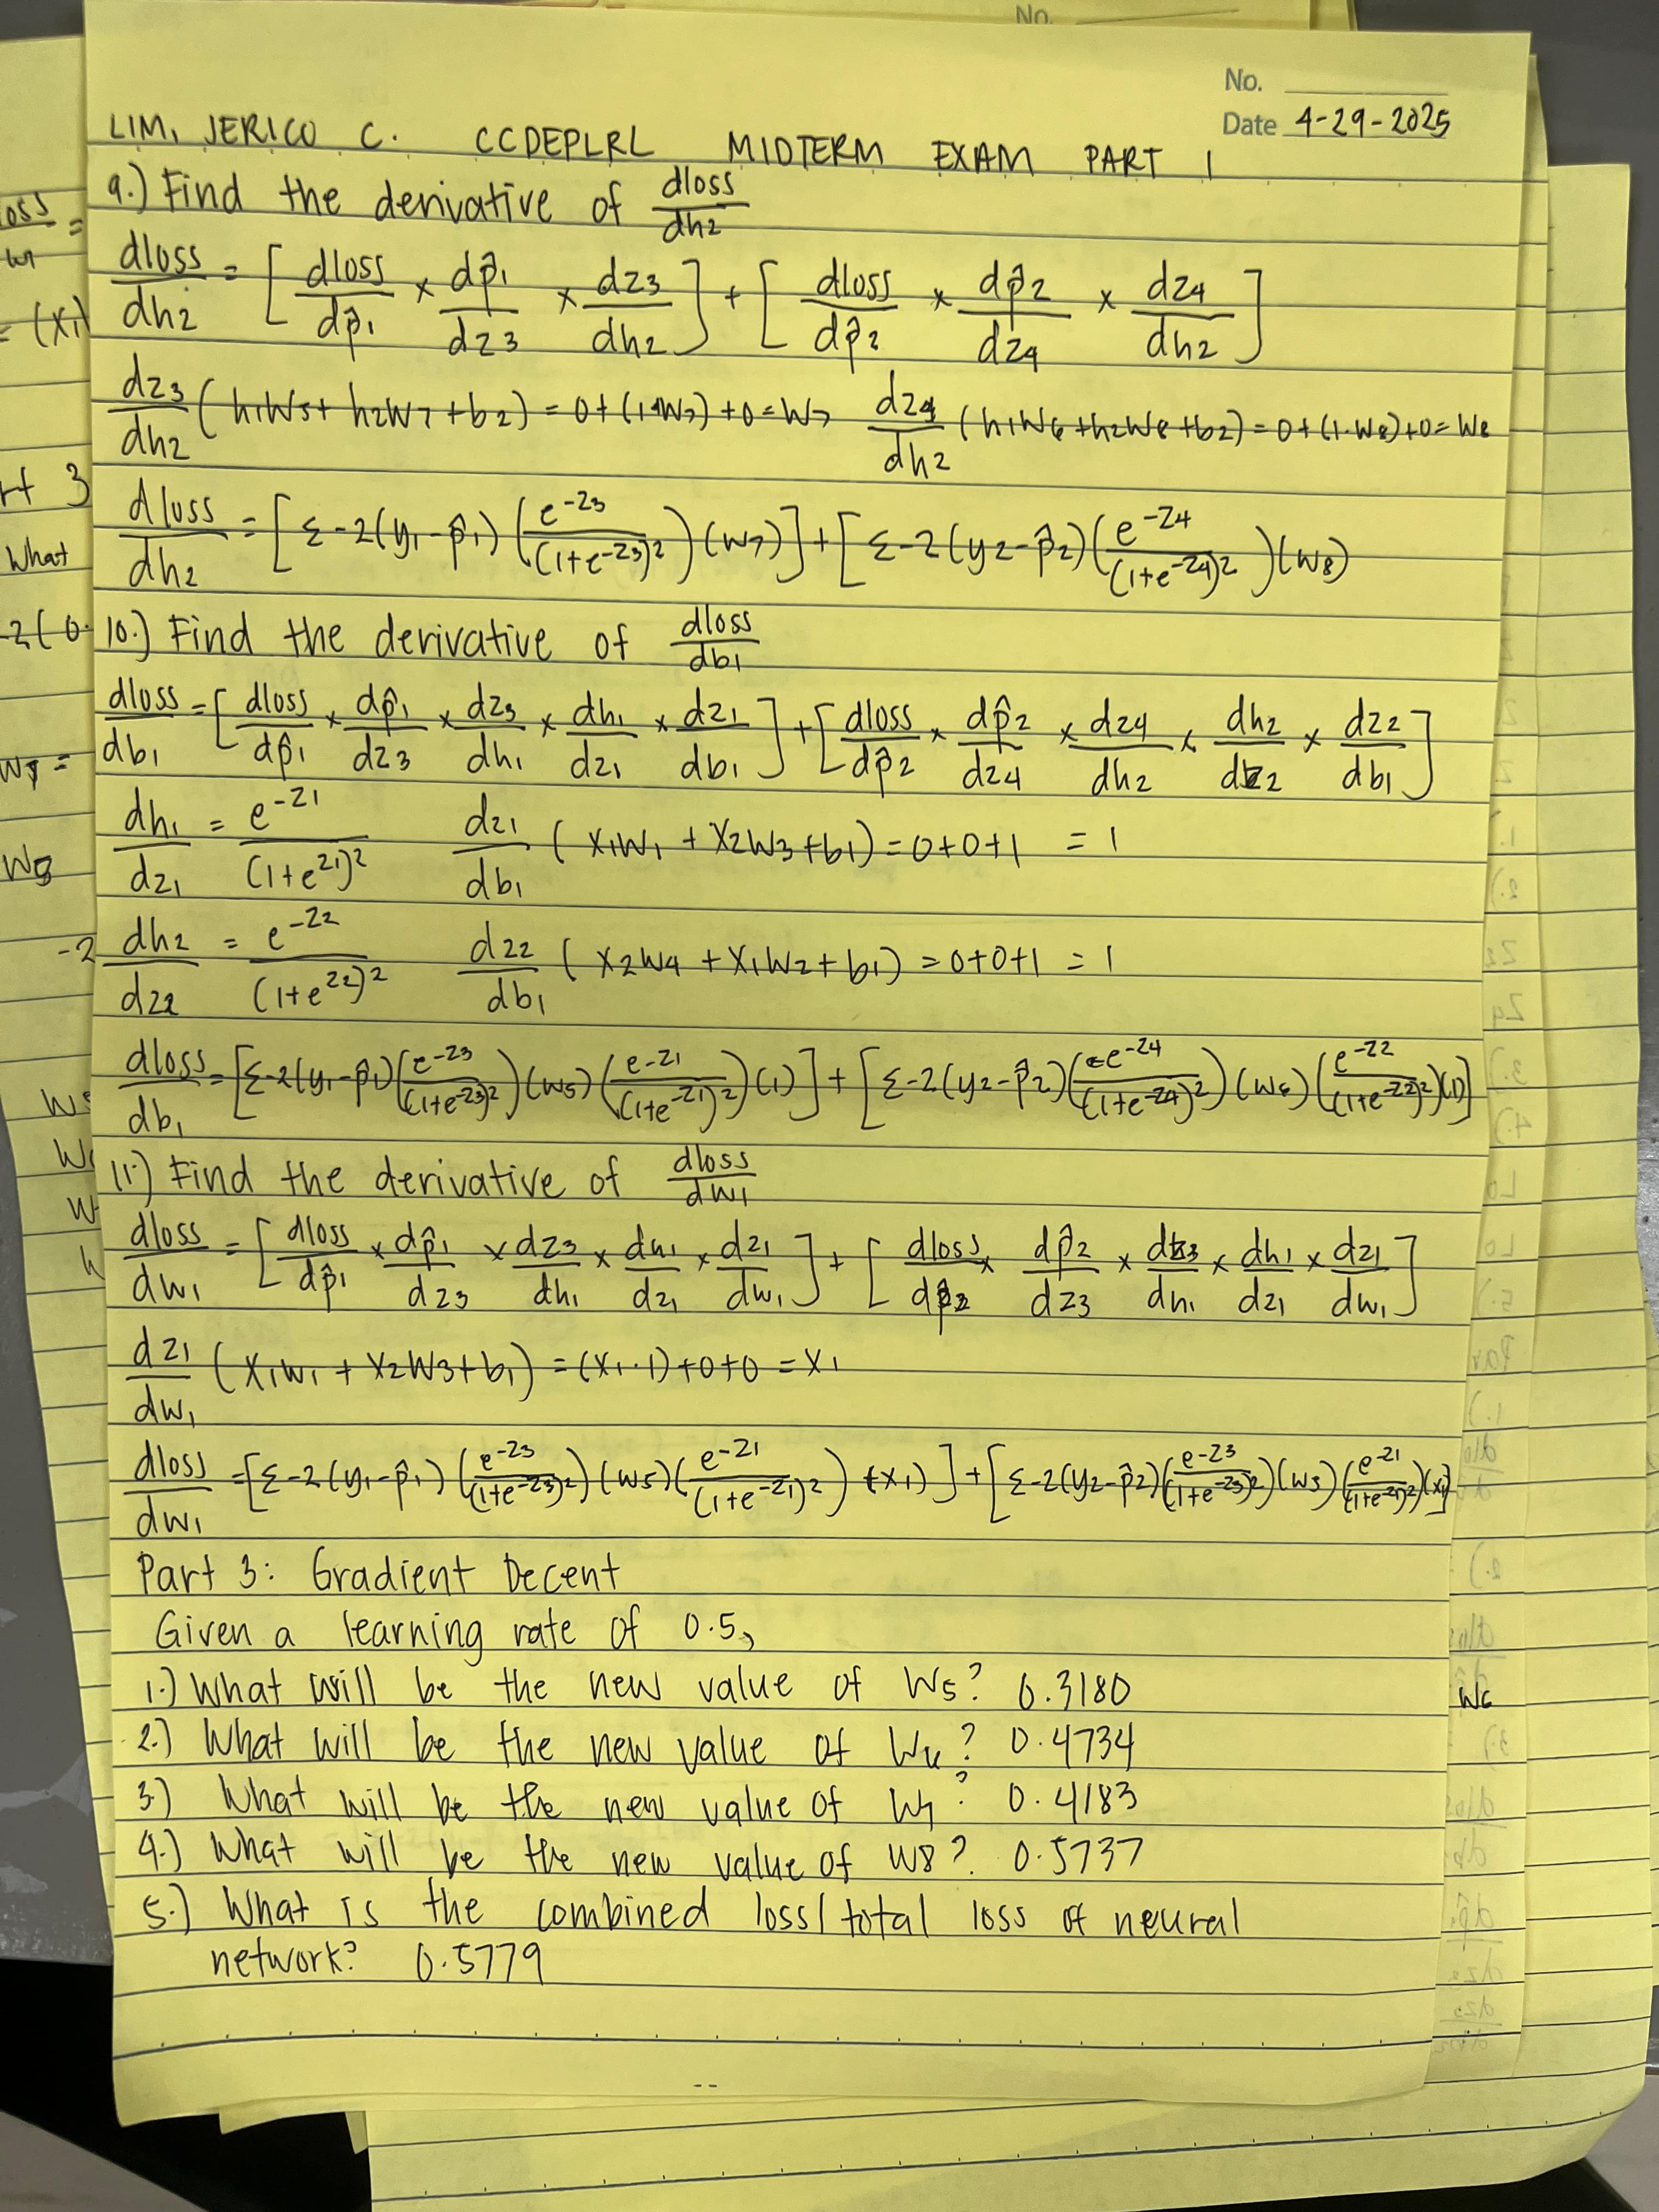 No.
No.
Date 4-29-2025
LIM, JERICO C. CCDEPLRL MIDTERM EXAM PART 1
9.) Find the derivative of dloss/dh2
dloss/dh2 = [dloss/dp̂1 × dp̂1/dz3 × dz3/dh2] + [dloss/dp̂2 × dp̂2/dz4 × dz4/dh2]
dz3/dh2 (h1W5 + h2W7 + b2) = 0 + (1·W7) + 0 = W7 dz4/dh2 (h1W6 + h2W8 + b2) = 0 + (1·W8) + 0 = W8
dloss/dh2 = [Σ-2(y1-p̂1)(e^-z3/(1+e^-z3)^2)(W7)] + [Σ-2(y2-p̂2)(e^-z4/(1+e^-z4)^2)(W8)
10.) Find the derivative of dloss/db1
dloss/db1 = [dloss/dp̂1 × dp̂1/dz3 × dz3/dh1 × dh1/dz1 × dz1/db1] + [dloss/dp̂2 × dp̂2/dz4 × dz4/dh2 × dh2/dz2 × dz2/db1]
dh1/dz1 = e^-z1/(1+e^z1)^2 dz1/db1 (X1W1 + X2W3 + b1) = 0+0+1 = 1
dh2/dz2 = e^-z2/(1+e^z2)^2 dz2/db1 (X2W4 + X1W2 + b1) = 0+0+1 = 1
dloss/db1 = [Σ-2(y1-p̂1)(e^-z3/(1+e^-z3)^2)(W5)(e^-z1/(1+e^-z1)^2)(1)] + [Σ-2(y2-p̂2)(e^-z4/(1+e^-z4)^2)(W6)(e^-z2/(1+e^-z2)^2)(1)]
11.) Find the derivative of dloss/dw1
dloss/dw1 = [dloss/dp̂1 × dp̂1/dz3 × dz3/dh1 × dh1/dz1 × dz1/dw1] + [dloss/dp̂2 × dp̂2/dz3 × dz3/dh1 × dh1/dz1 × dz1/dw1]
dz1/dw1 (X1W1 + X2W3 + b1) = (X1·1) + 0 + 0 = X1
dloss/dw1 = [Σ-2(y1-p̂1)(e^-z3/(1+e^-z3)^2)(W5)(e^-z1/(1+e^-z1)^2)(X1)] + [Σ-2(y2-p̂2)(e^-z3/(1+e^-z3)^2)(W5)(e^-z1/(1+e^-z1)^2)(X1)]
Part 3: Gradient Decent
Given a learning rate of 0.5,
1.) What will be the new value of W5? 0.3180
2.) What will be the new value of W6? 0.4734
3.) What will be the new value of W7? 0.4183
4.) What will be the new value of W8? 0.5737
5.) What is the combined loss/total loss of neural
network? 0.5779